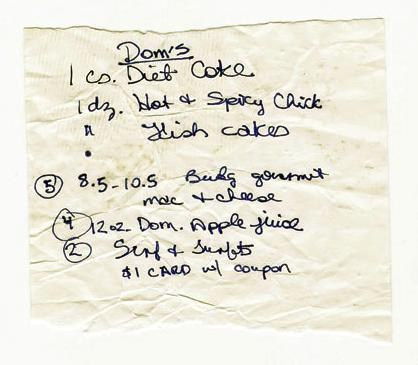 Dom's
1 cs. Diet Coke
1 dz. Hot & Spicy Chick
" Fish cakes
•
⑤ 8.5-10.5 Budg gourmet
mac & cheese
④ 12 oz. Dom. Apple juice
② Surf &
$1 CARD w/ coupon